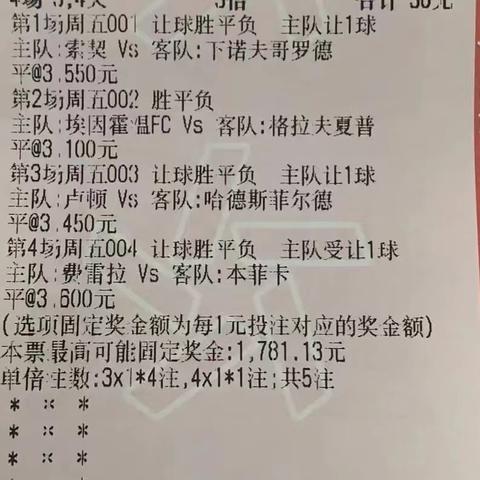 第1场周五001 让球胜平负 主队让1球
主队:索契 Vs 客队:下诺夫哥罗德
平@3.550元
第2场周五002 胜平负
主队:埃因霍温FC Vs 客队:格拉夫夏普
平@3.100元
第3场周五003 让球胜平负 主队让1球
主队:卢顿 Vs 客队:哈德斯菲尔德
平@3.450元
第4场周五004 让球胜平负 主队受让1球
主队:费雷拉 Vs 客队:本菲卡
平@3.600元
(选项固定奖金额为每1元投注对应的奖金额)
本票最高可能固定奖金:1,781.13元
单倍注数:3x1*4注,4x1*1注;共5注
* * *
* * *
* * *